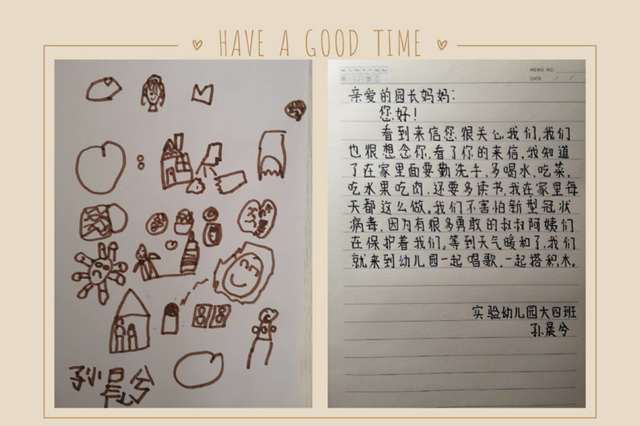 HAVE A GOOD TIME
孙晨兮
MEMO NO.
DATE / /
亲爱的园长妈妈:
您好!
看到来信您很关心我们,我们
也很想念你,看了你的来信,我知道
了在家里面要勤洗手,多喝水,吃菜,
吃水果吃肉,还要多读书,我在家里每
天都这么做。我们不害怕新型冠状
病毒,因为有很多勇敢的叔叔阿姨们
在保护着我们。等到天气暖和了,我们
就来到幼儿园一起唱歌,一起搭积木。
实验幼儿园大四班
孙晨兮